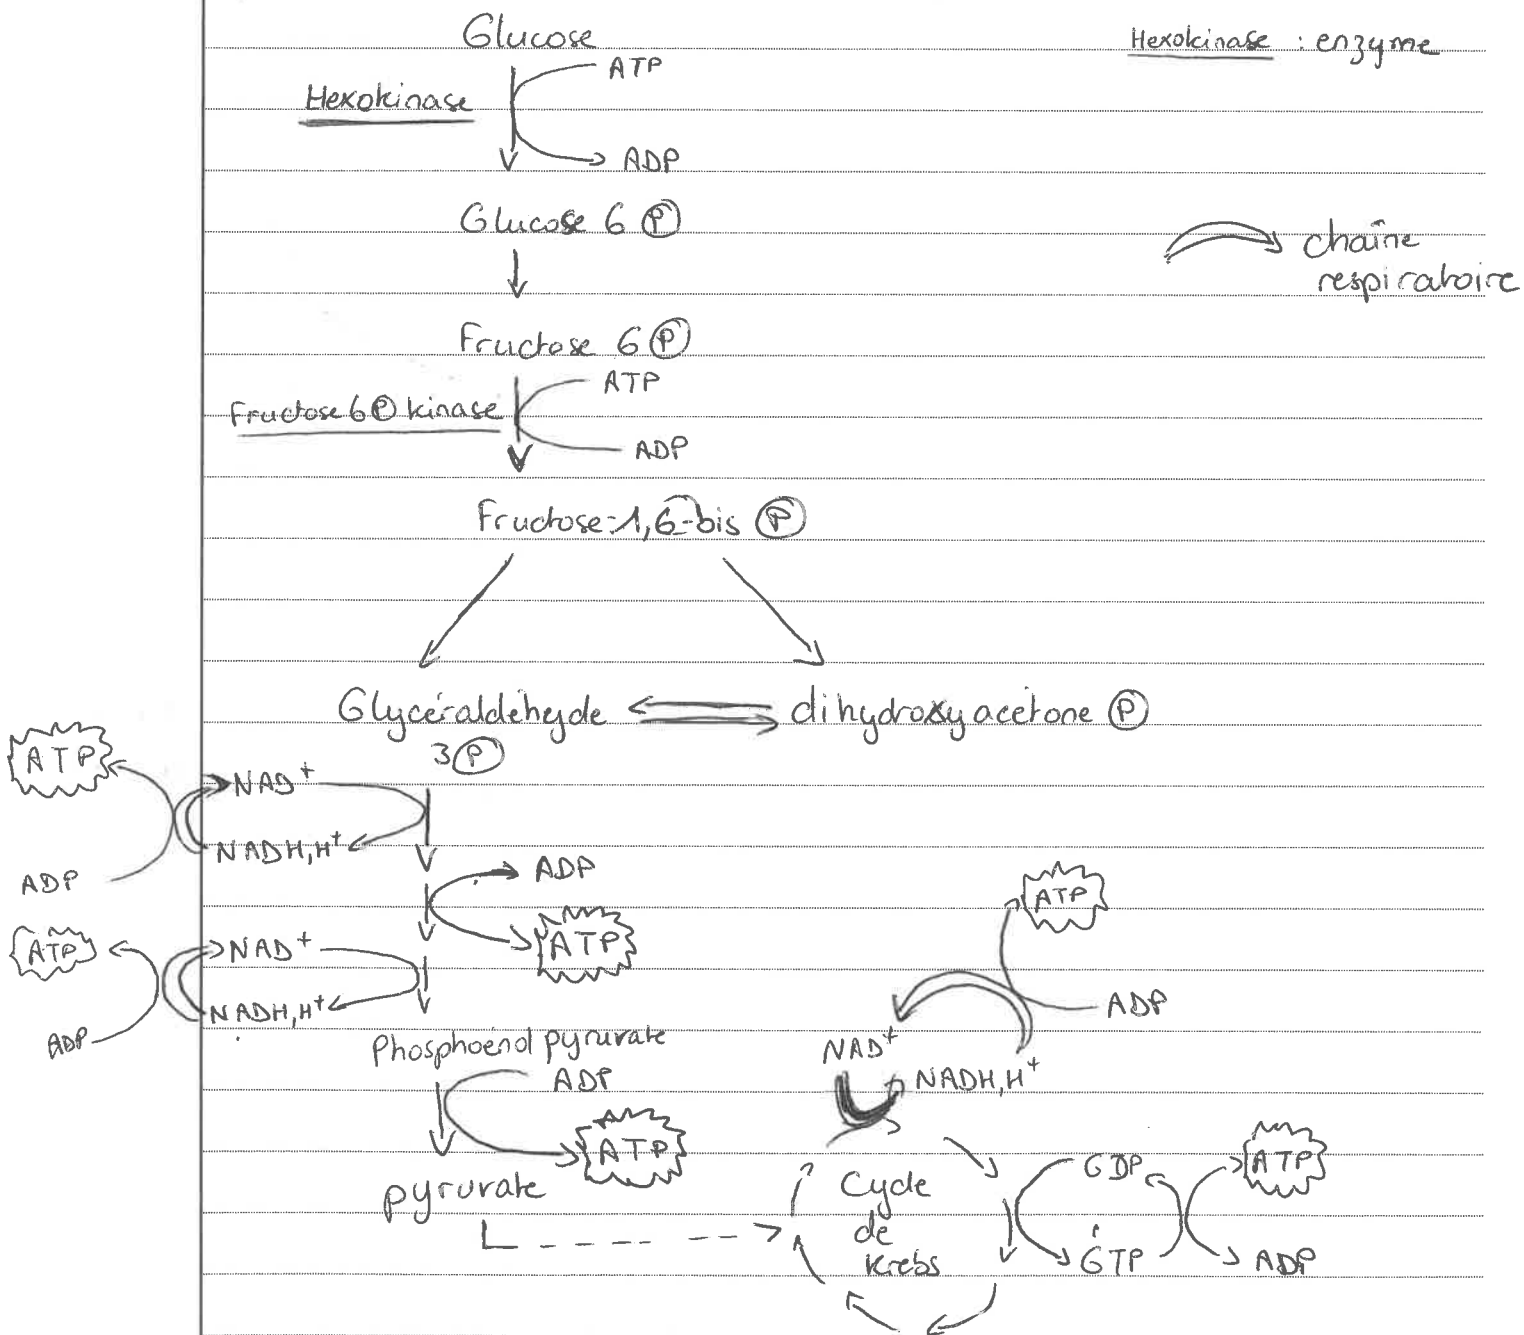 Glucose
Hexokinase : enzyme
ATP
Hexokinase
ADP
Glucose 6 P
chaîne
respiratoire
Fructose 6 P
ATP
Fructose 6 P kinase
ADP
Fructose-1,6-bis P
Glycéraldéhyde
3 P
dihydroxyacétone P
ATP
NAD+
NADH,H+
ADP
ADP
ATP
ATP
NAD+
NADH,H+
ADP
Phosphoénol pyruvate
ADP
ATP
pyruvate
ATP
ADP
NAD+
NADH,H+
Cycle
de
Krebs
GDP
GTP
ATP
ADP